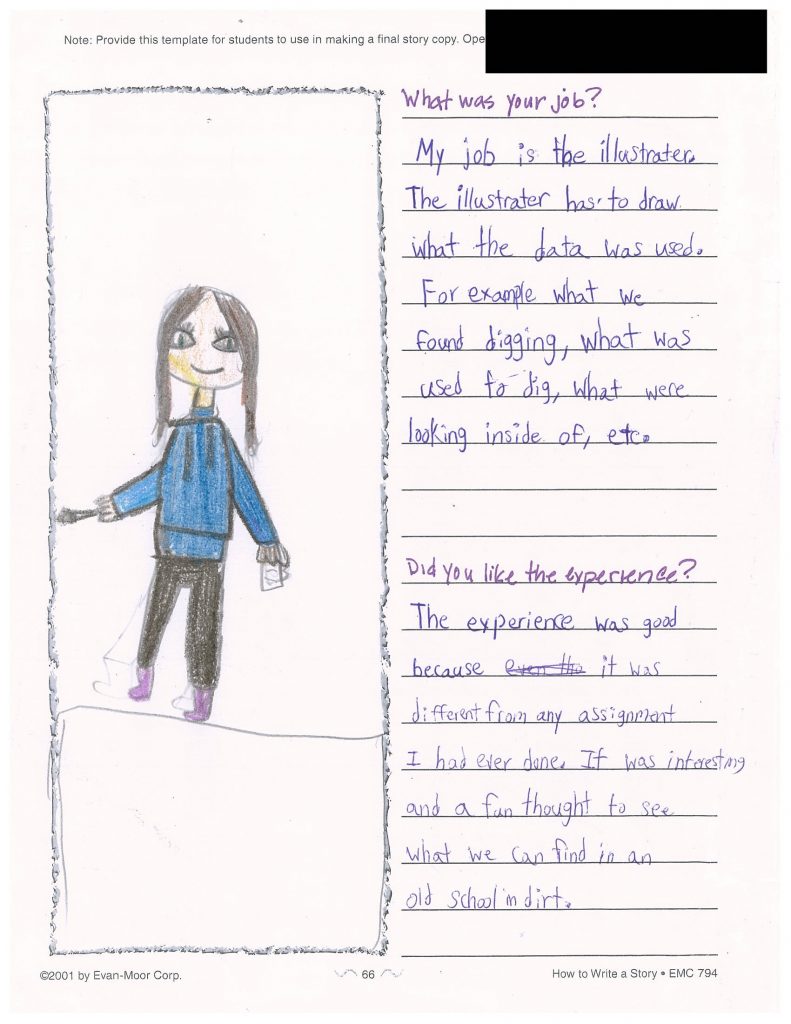 Note: Provide this template for students to use in making a final story copy. Ope
What was your job?
My job is the illustrater.
The illustrater has to draw
what the data was used.
For example what we
found digging, what was
used to dig, what were
looking inside of, etc.
Did you like the experience?
The experience was good
because even tho it was
different from any assignment
I had ever done. It was interesting
and a fun thought to see
what we can find in an
old school in dirt.
©2001 by Evan-Moor Corp.
66
How to Write a Story • EMC 794